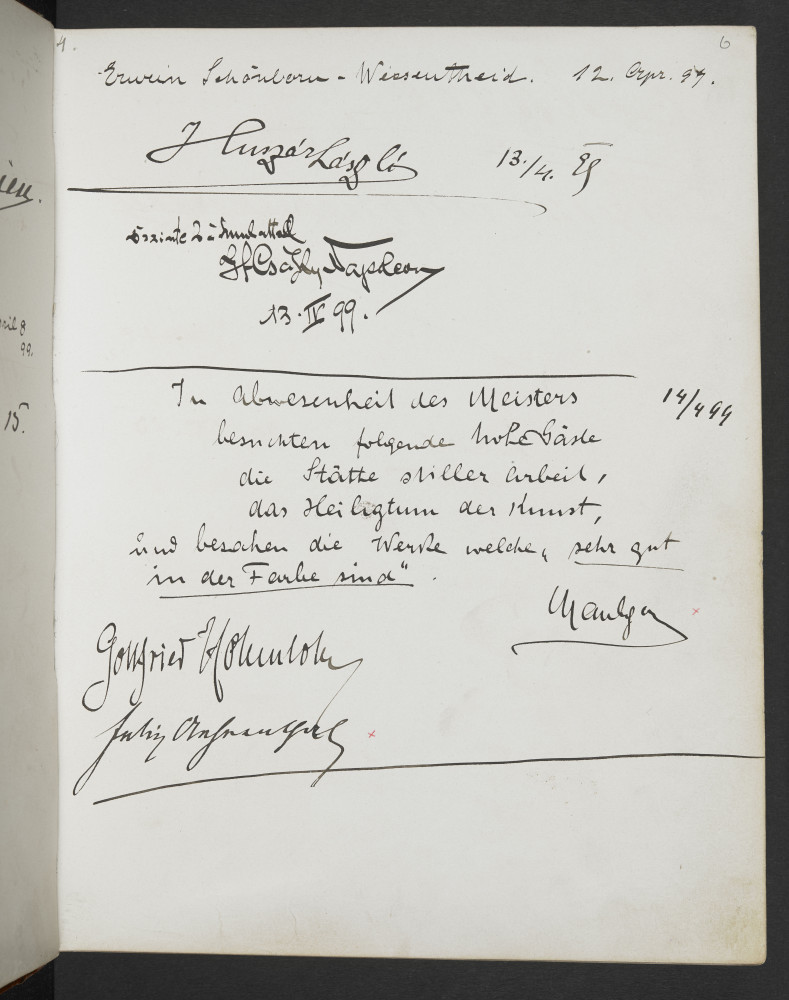 4.
6
Erwein Schönborn - Wiesentheid. 12. Apr. 99.
Huszár László 13./4. 99
őszinte
Napoleon
13. IV 99.
In Abwesenheit des Meisters 14/4 99
besuchten folgende hohe Gäste
die Stätte stiller Arbeit,
das Heiligtum der Kunst,
und besahen die Werke welche „sehr gut
in der Farbe sind“.
Gottfried Hohenlohe
15.
99.